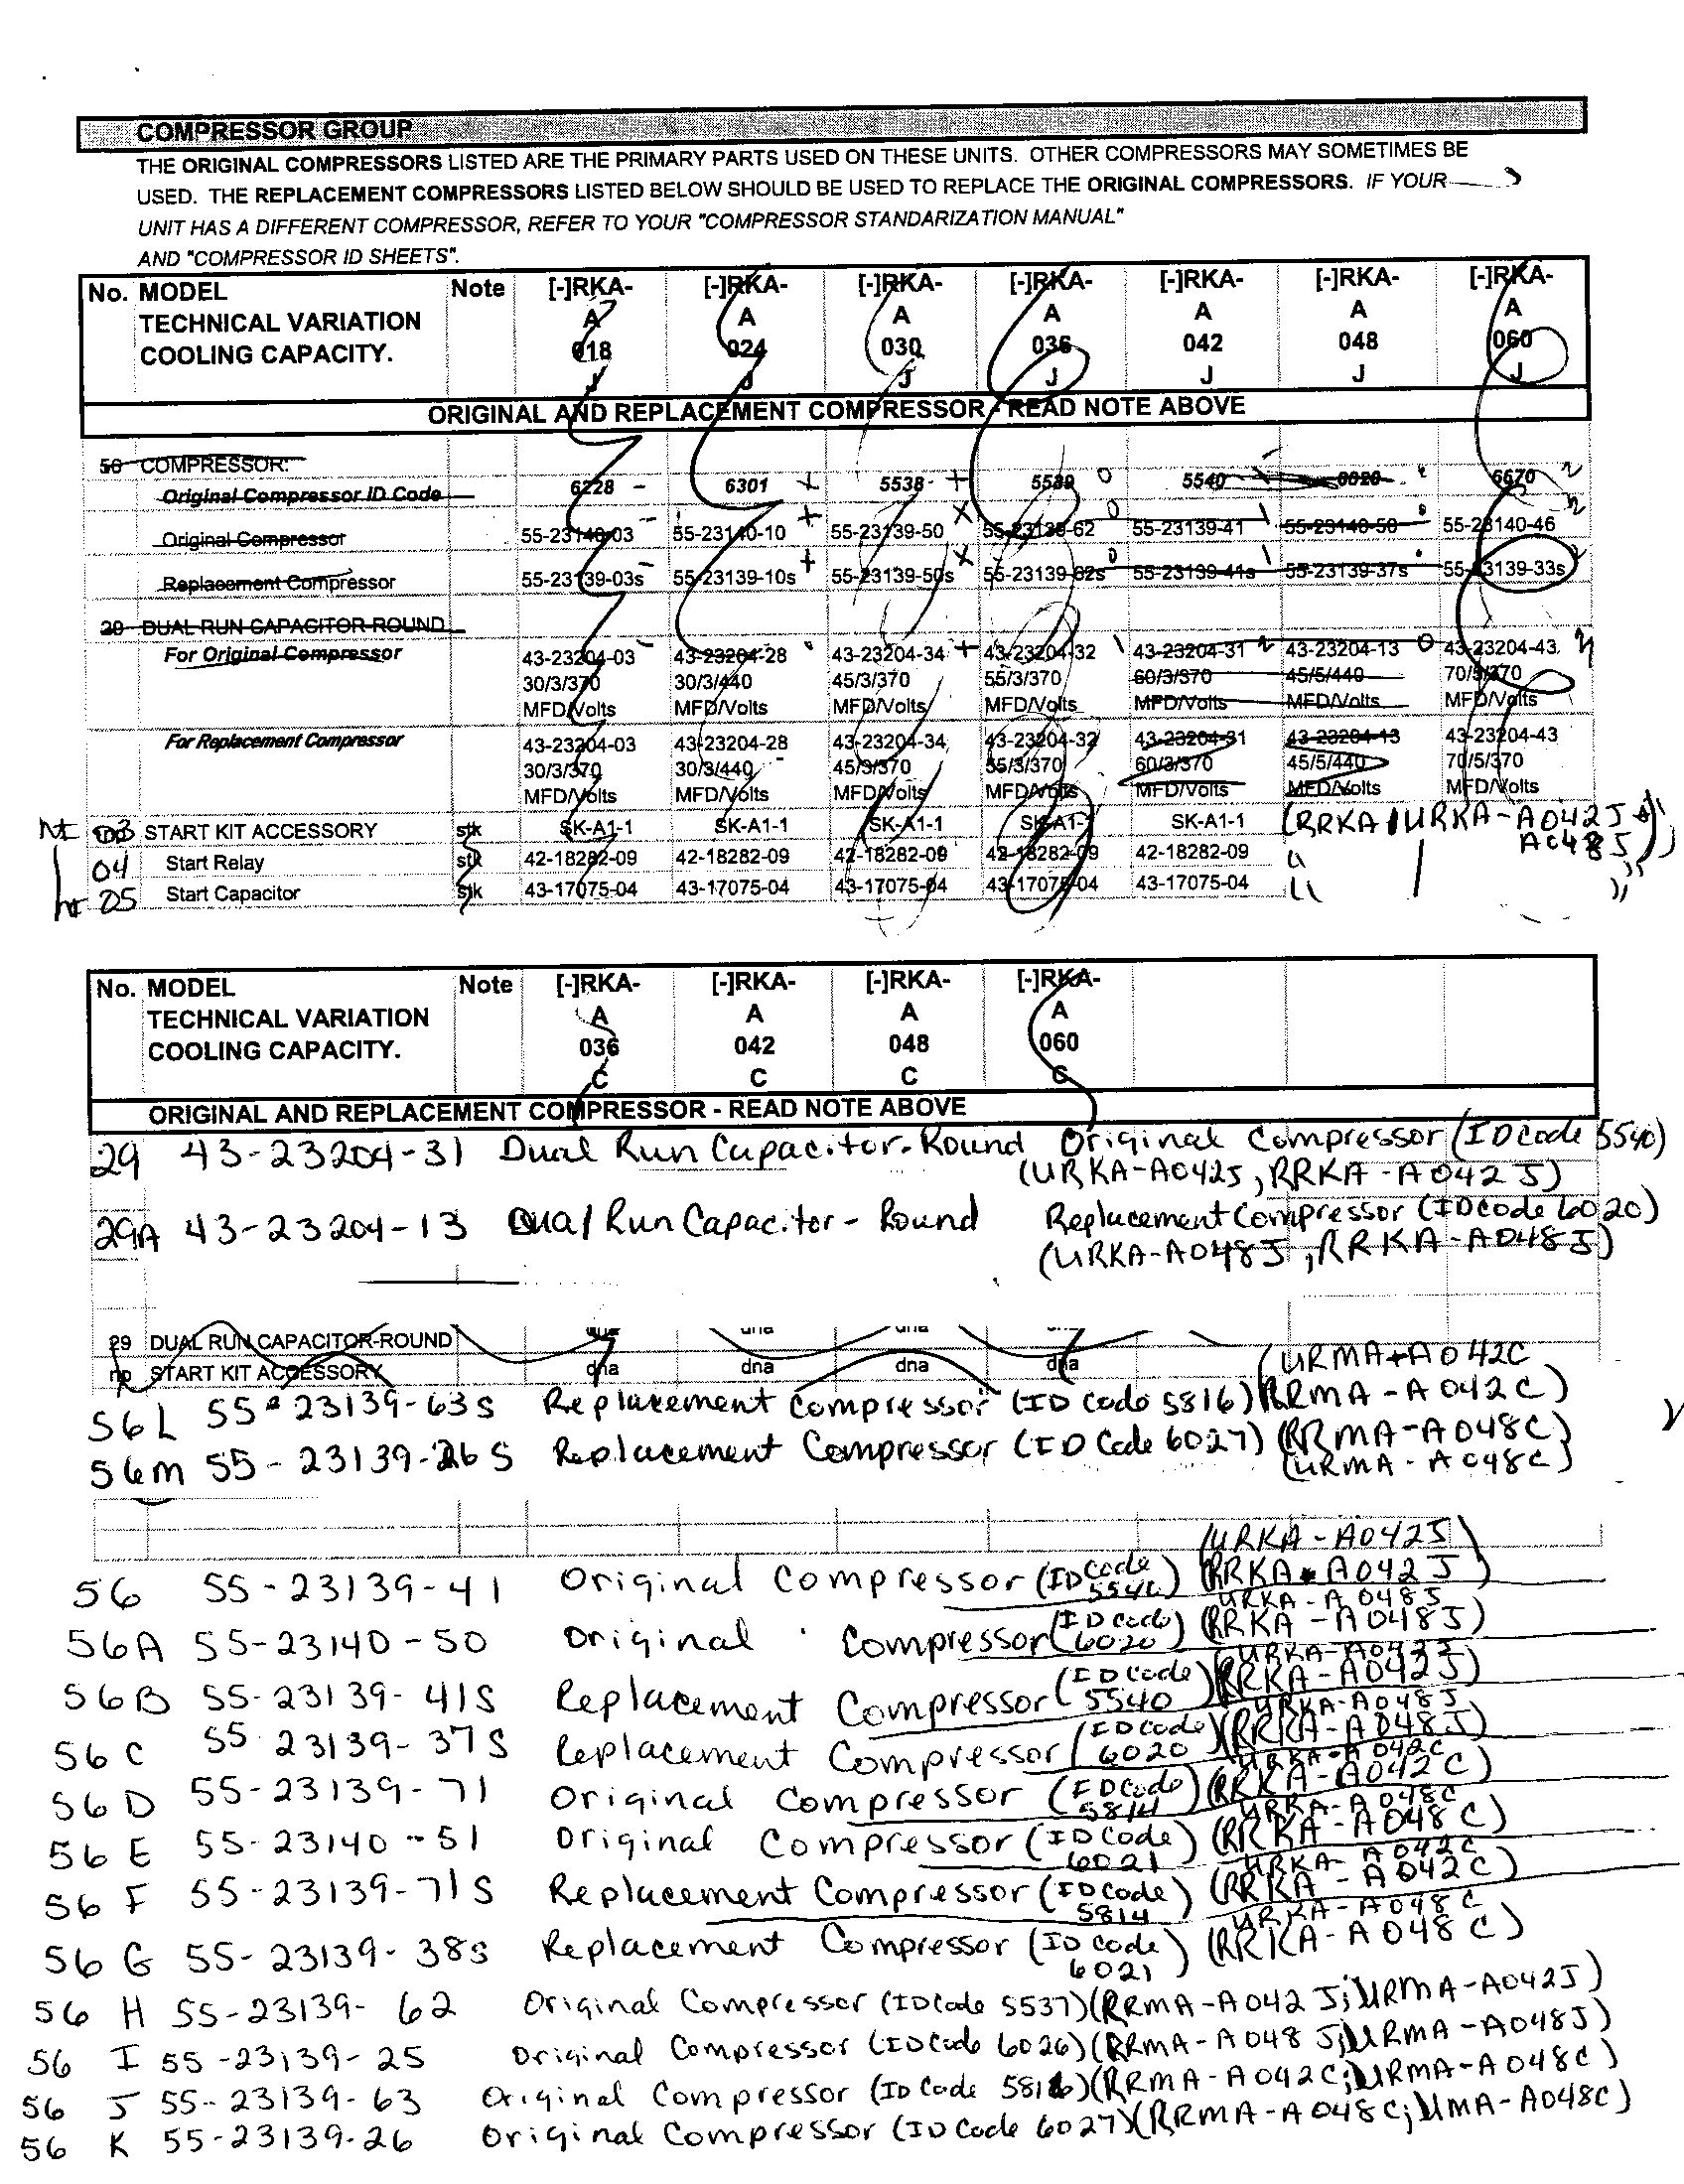 COMPRESSOR GROUP
THE ORIGINAL COMPRESSORS LISTED ARE THE PRIMARY PARTS USED ON THESE UNITS. OTHER COMPRESSORS MAY SOMETIMES BE
USED. THE REPLACEMENT COMPRESSORS LISTED BELOW SHOULD BE USED TO REPLACE THE ORIGINAL COMPRESSORS. IF YOUR
UNIT HAS A DIFFERENT COMPRESSOR, REFER TO YOUR "COMPRESSOR STANDARIZATION MANUAL"
AND "COMPRESSOR ID SHEETS".
No. MODEL Note [-]RKA- [-]RKA- [-]RKA- [-]RKA- [-]RKA- [-]RKA- [-]RKA-
TECHNICAL VARIATION A A A A A A A
COOLING CAPACITY. 018 024 030 036 042 048 060
J J J J J J J
ORIGINAL AND REPLACEMENT COMPRESSOR - READ NOTE ABOVE
56 COMPRESSOR:
Original Compressor ID Code 6228 6301 5538 5539 5540 6020 6670
Original Compressor 55-23140-03 55-23140-10 55-23139-50 55-23139-62 55-23139-41 55-23140-50 55-23140-46
Replacement Compressor 55-23139-03s 55-23139-10s 55-23139-50s 55-23139-62s 55-23139-41s 55-23139-37s 55-23139-33s
29 DUAL RUN CAPACITOR-ROUND
For Original Compressor 43-23204-03 43-23204-28 43-23204-34 43-23204-32 43-23204-31 43-23204-13 43-23204-43
30/3/370 30/3/440 45/3/370 55/3/370 60/3/370 45/5/440 70/5/370
MFD/Volts MFD/Volts MFD/Volts MFD/Volts MFD/Volts MFD/Volts MFD/Volts
For Replacement Compressor 43-23204-03 43-23204-28 43-23204-34 43-23204-32 43-23204-31 43-23204-13 43-23204-43
30/3/370 30/3/440 45/3/370 55/3/370 60/3/370 45/5/440 70/5/370
MFD/Volts MFD/Volts MFD/Volts MFD/Volts MFD/Volts MFD/Volts MFD/Volts
03 START KIT ACCESSORY stk SK-A1-1 SK-A1-1 SK-A1-1 SK-A1-1 SK-A1-1 (RRKA/URKA-A042J
A048J
04 Start Relay stk 42-18282-09 42-18282-09 42-18282-09 42-18282-09 42-18282-09 "
05 Start Capacitor stk 43-17075-04 43-17075-04 43-17075-04 43-17075-04 43-17075-04 "
No. MODEL Note [-]RKA- [-]RKA- [-]RKA- [-]RKA-
TECHNICAL VARIATION A A A A
COOLING CAPACITY. 036 042 048 060
C C C C
ORIGINAL AND REPLACEMENT COMPRESSOR - READ NOTE ABOVE
29 43-23204-31 Dual Run Capacitor-Round Original Compressor (ID Code 5540)
(URKA-A042J, RRKA-A042J)
29A 43-23204-13 Dual Run Capacitor - Round Replacement Compressor (ID code 6020)
(URKA-A048J, RRKA-A048J)
29 DUAL RUN CAPACITOR-ROUND
np START KIT ACCESSORY dna dna dna dna
(URMA-A042C
56L 55-23139-63S Replacement Compressor (ID Code 5816) (RRMA-A042C)
56M 55-23139-26S Replacement Compressor (ID Code 6027) (RRMA-A048C)
(URMA-A048C)
(URKA-A042J)
56 55-23139-41 Original Compressor (ID Code 5540) (RRKA-A042J)
URKA-A048J
56A 55-23140-50 Original Compressor (ID code 6020) (RRKA-A048J)
URKA-A042J
56B 55-23139-41S Replacement Compressor (ID Code 5540) (RRKA-A042J)
URKA-A048J
56C 55 23139-37S Replacement Compressor (ID Code 6020) (RRKA-A048J)
URKA-A042C
56D 55-23139-71 Original Compressor (ID Code 5814) (RRKA-A042C)
URKA-A048C
56E 55-23140-51 Original Compressor (ID Code 6021) (RRKA-A048C)
URKA-A042C
56F 55-23139-71S Replacement Compressor (ID Code 5814) (RRKA-A042C)
URKA-A048C
56G 55-23139-38s Replacement Compressor (ID code 6021) (RRKA-A048C)
56 H 55-23139-62 Original Compressor (ID Code 5537) (RRMA-A042J; URMA-A042J)
56 I 55-23139-25 Original Compressor (ID Code 6026) (RRMA-A048J; URMA-A048J)
56 J 55-23139-63 Original Compressor (ID Code 5816) (RRMA-A042C; URMA-A048C)
56 K 55-23139-26 Original Compressor (ID Code 6027) (RRMA-A048C; UMA-A048C)